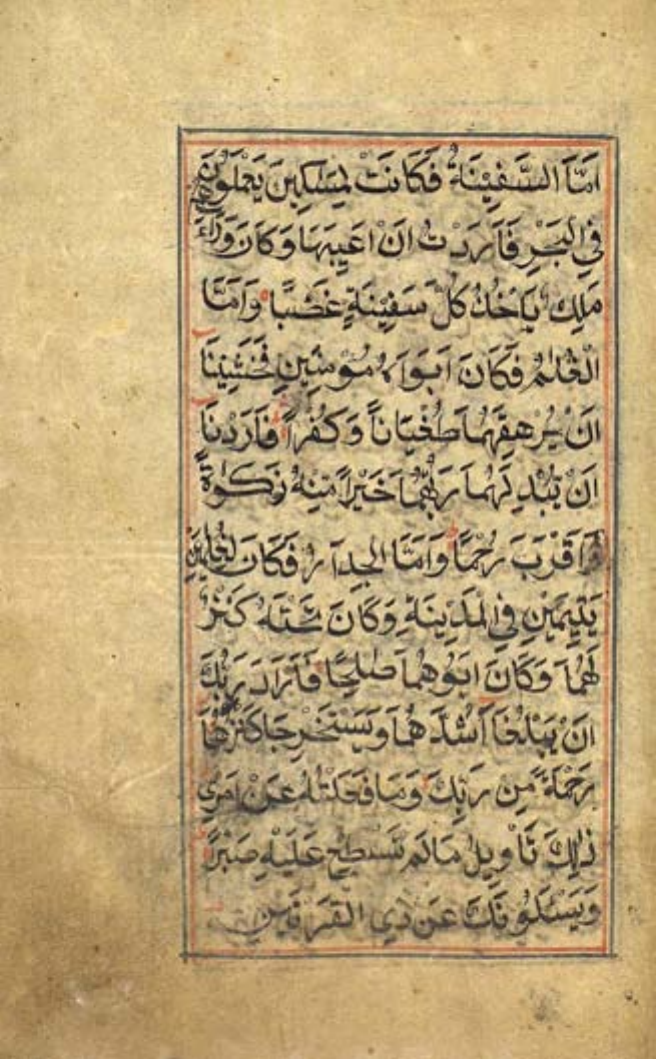 اَمَّا السَّفِيْنَةُ فَكَانَتْ لِمَسٰكِيْنَ يَعْمَلُوْنَ
فِي الْبَحْرِ فَاَرَدْتُ اَنْ اَعِيْبَهَا وَكَانَ وَرَآءَهُمْ
مَلِكٌ يَاْخُذُ كُلَّ سَفِيْنَةٍ غَصْبًا وَاَمَّا
الْغُلٰمُ فَكَانَ اَبَوَاهُ مُؤْمِنَيْنِ فَخَشِيْنَا
اَنْ يُرْهِقَهُمَا طُغْيَانًا وَكُفْرًا فَاَرَدْنَا
اَنْ يُبْدِلَهُمَا رَبُّهُمَا خَيْرًا مِنْهُ زَكٰوةً
وَاَقْرَبَ رُحْمًا وَاَمَّا الْجِدَارُ فَكَانَ لِغُلٰمَيْنِ
يَتِيْمَيْنِ فِي الْمَدِيْنَةِ وَكَانَ تَحْتَهُ كَنْزٌ
لَهُمَا وَكَانَ اَبُوْهُمَا صٰلِحًا فَاَرَادَ رَبُّكَ
اَنْ يَبْلُغَا اَشُدَّهُمَا وَيَسْتَخْرِجَا كَنْزَهُمَا
رَحْمَةً مِنْ رَبِّكَ وَمَا فَعَلْتُهُ عَنْ اَمْرِي
ذٰلِكَ تَاْوِيْلُ مَا لَمْ تَسْطِعْ عَلَيْهِ صَبْرًا
وَيَسْئَلُوْنَكَ عَنْ ذِي الْقَرْنَيْنِ